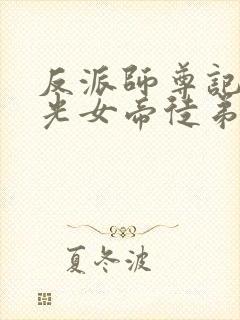 反派師尊記
光女帝徒弟
夏冬波